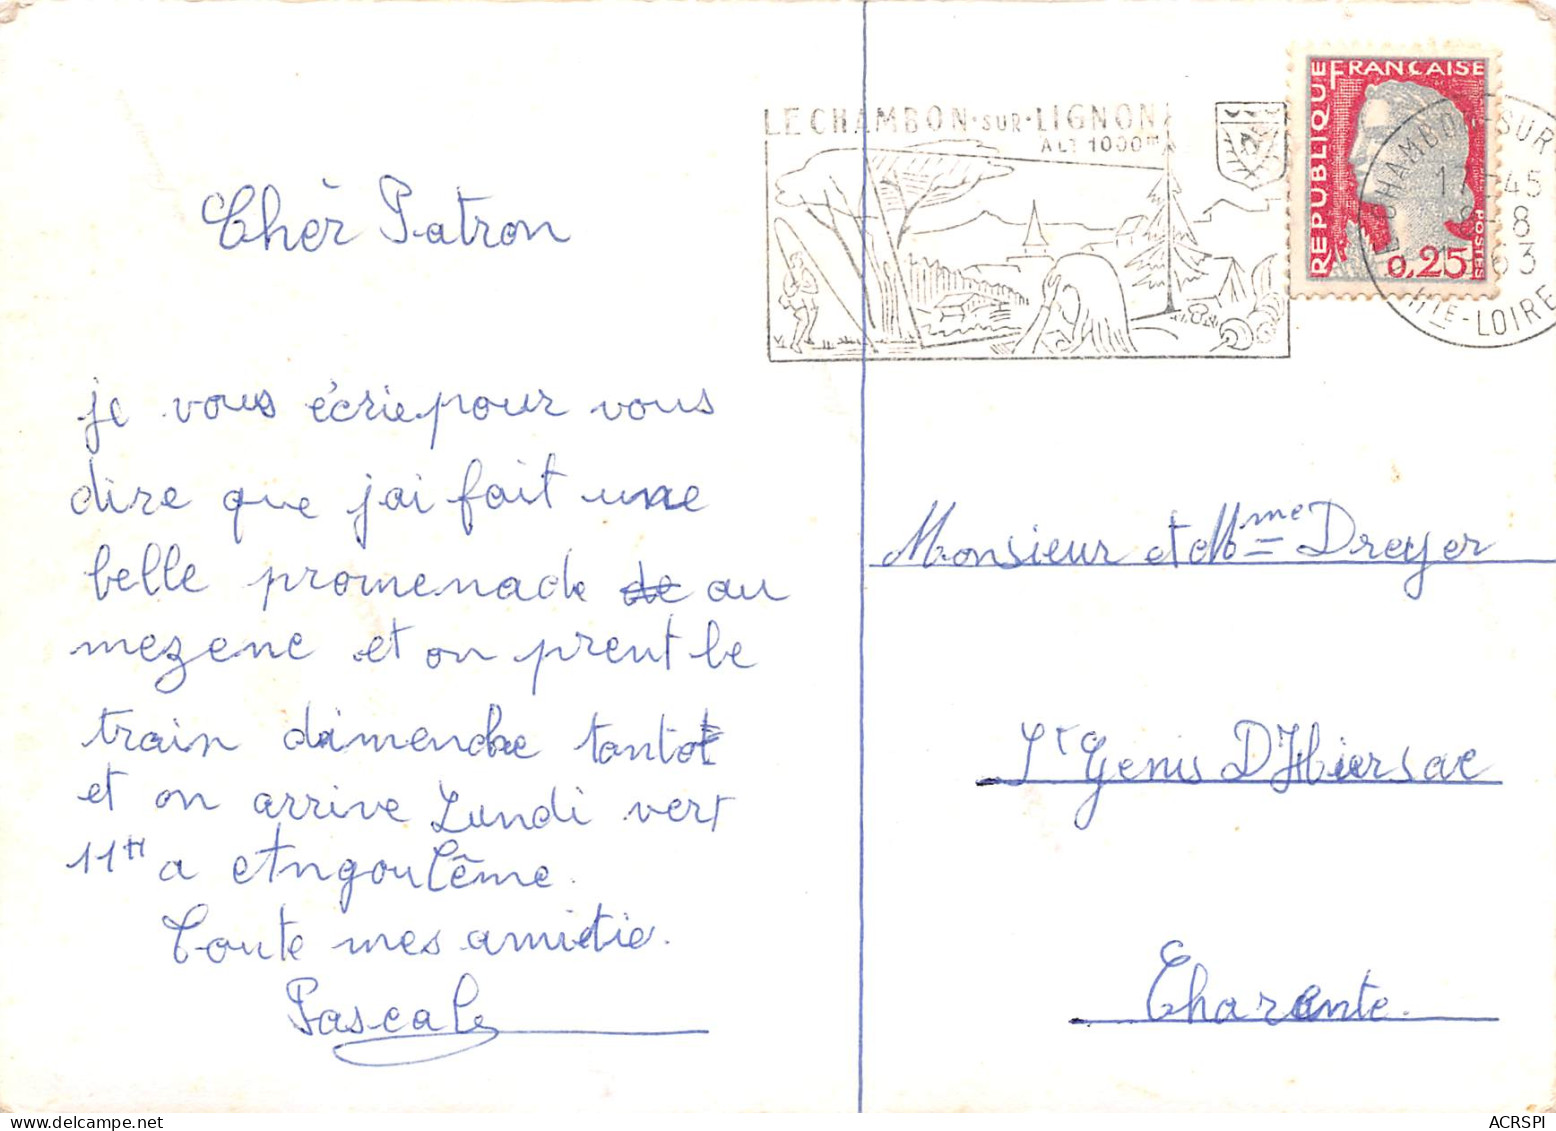 Chèr Patron
je vous écrie pour vous
dire que jai fait une
belle promenade de au
mezenc et on prent le
train dimenche tantot
et on arrive Lundi vert
11H a Angoulême.
Toute mes amitie.
Pascale
LE CHAMBON-SUR-LIGNON
ALT 1000m
REPUBLIQUE FRANÇAISE
0,25
POSTES
LE CHAMBON-SUR-
45
8
63
Hte-LOIRE
Monsieur et Mme Dreyer
St Genis D'Hiersac
Charente.
ACRSPI